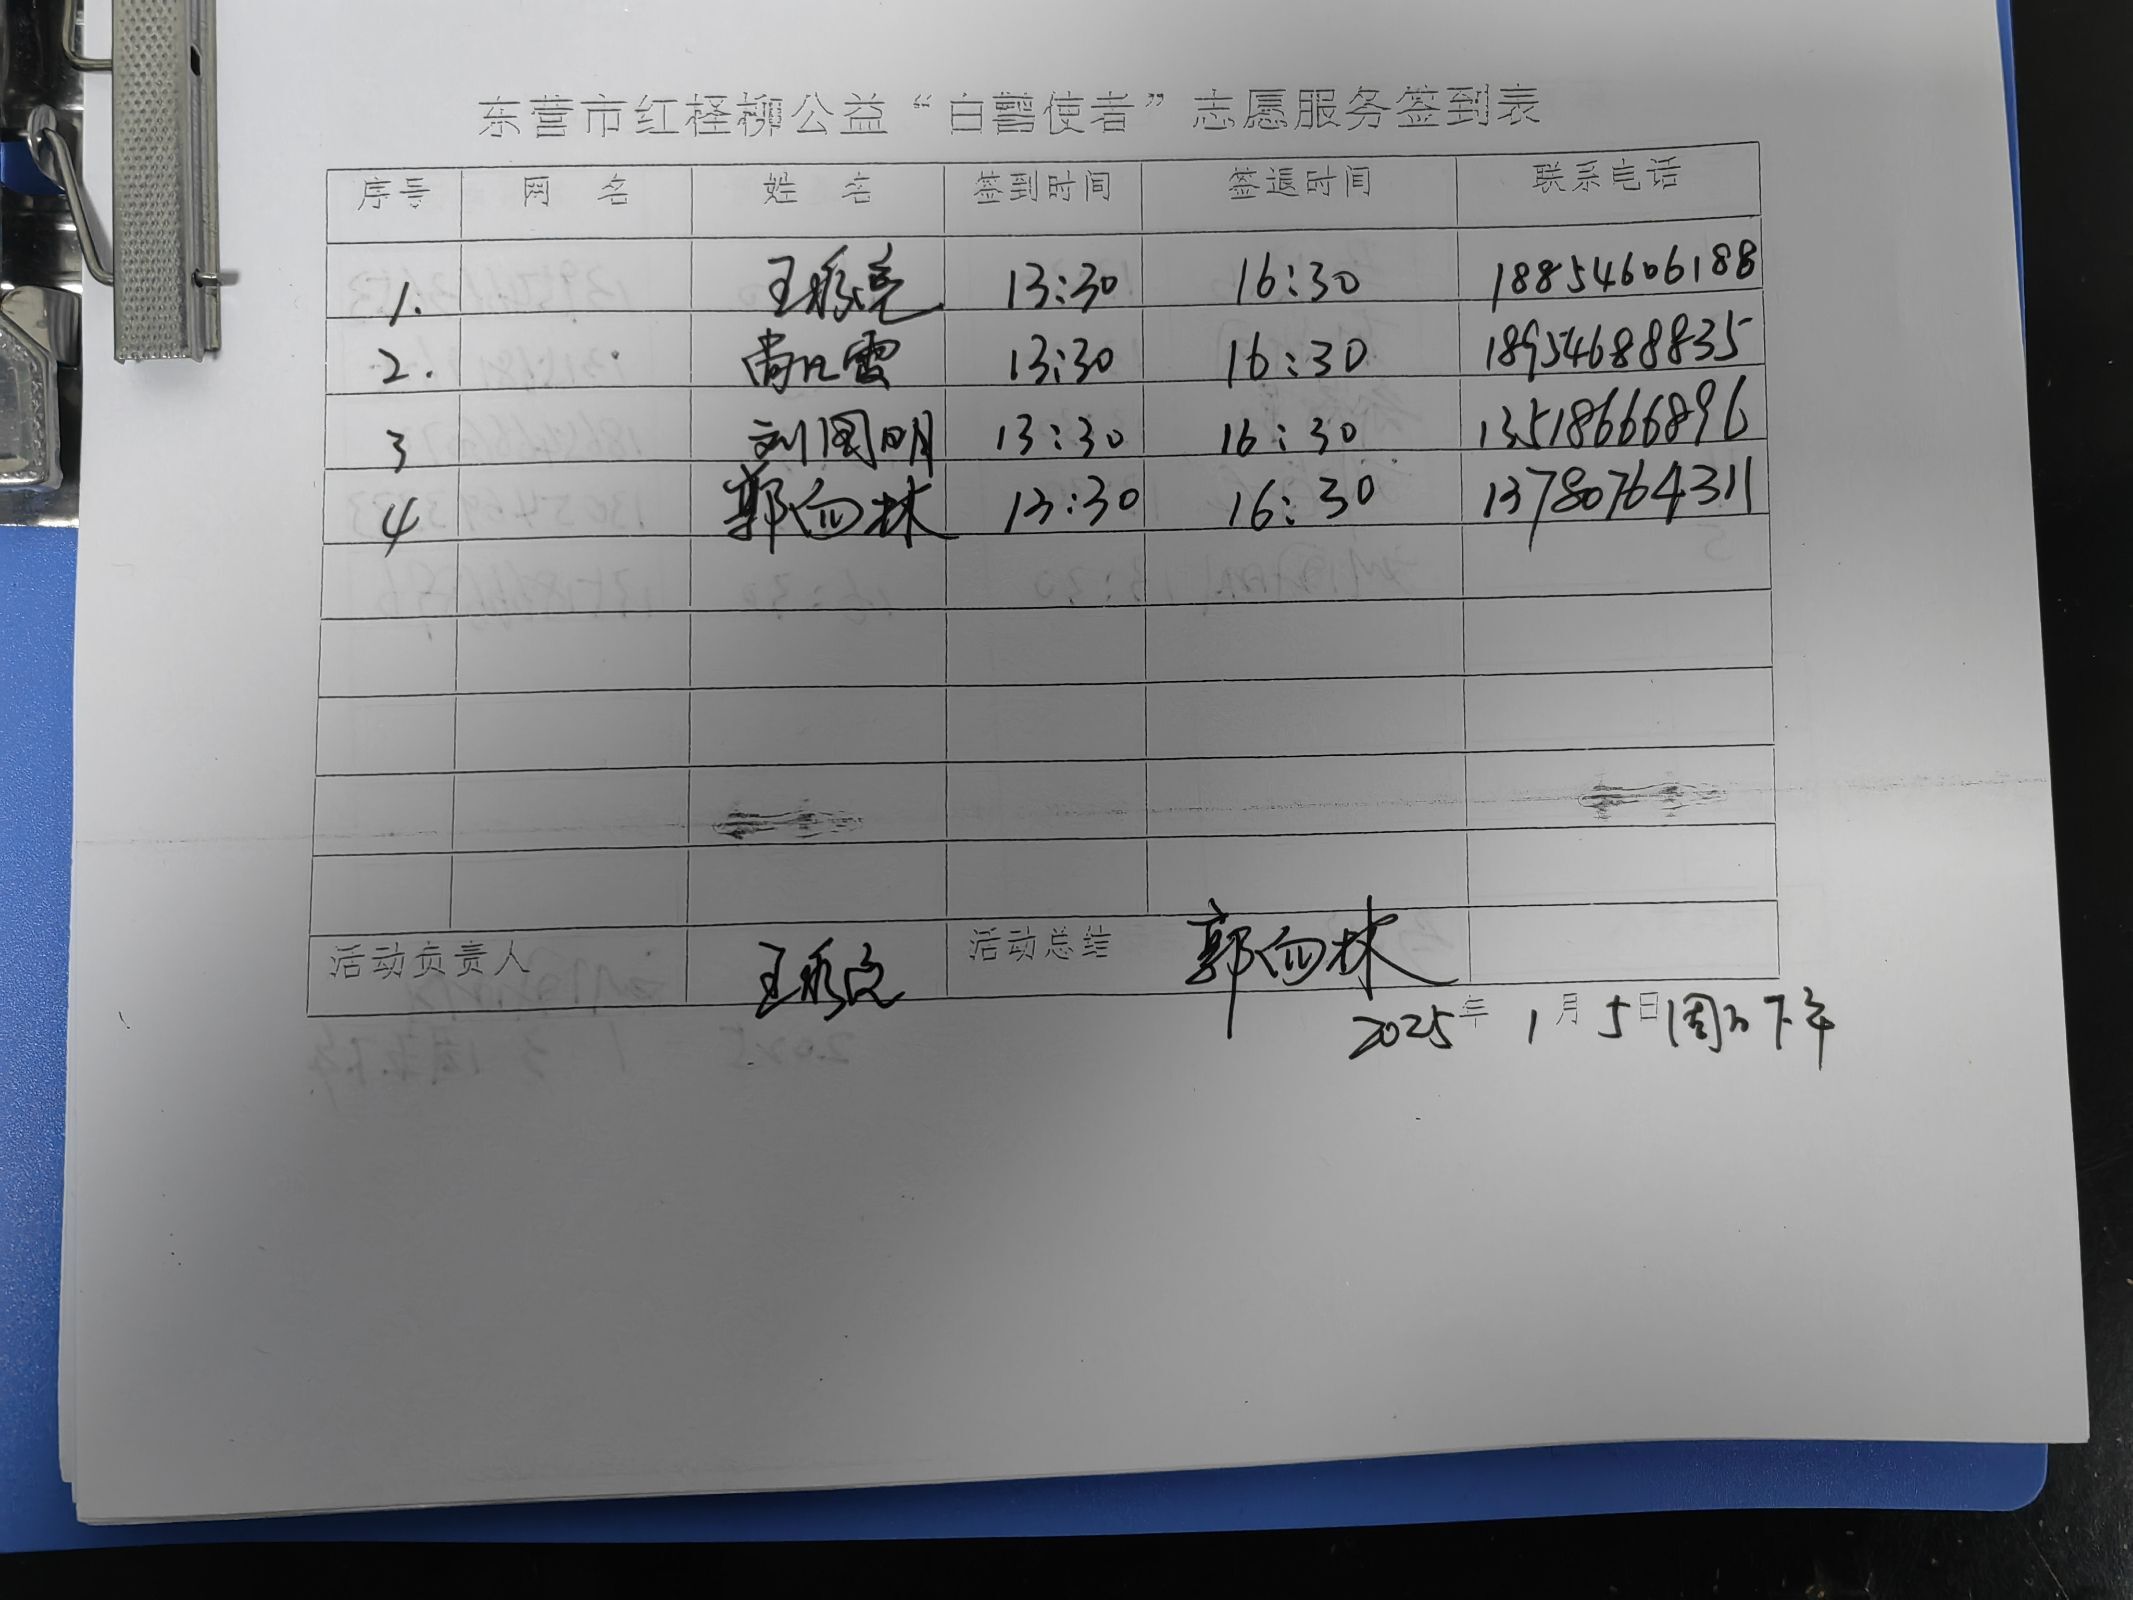 东营市红柽柳公益“白鹭使者”志愿服务签到表
序号 网 名 姓 名 签到时间 签退时间 联系电话
1. 13:30 16:30 18854606188
2. 13:30 16:30 18954688835
3 刘国明 13:30 16:30 13518666896
4 郭向林 13:30 16:30 13780764311
活动负责人 活动总结 郭向林
2025年1月5日(周日下午